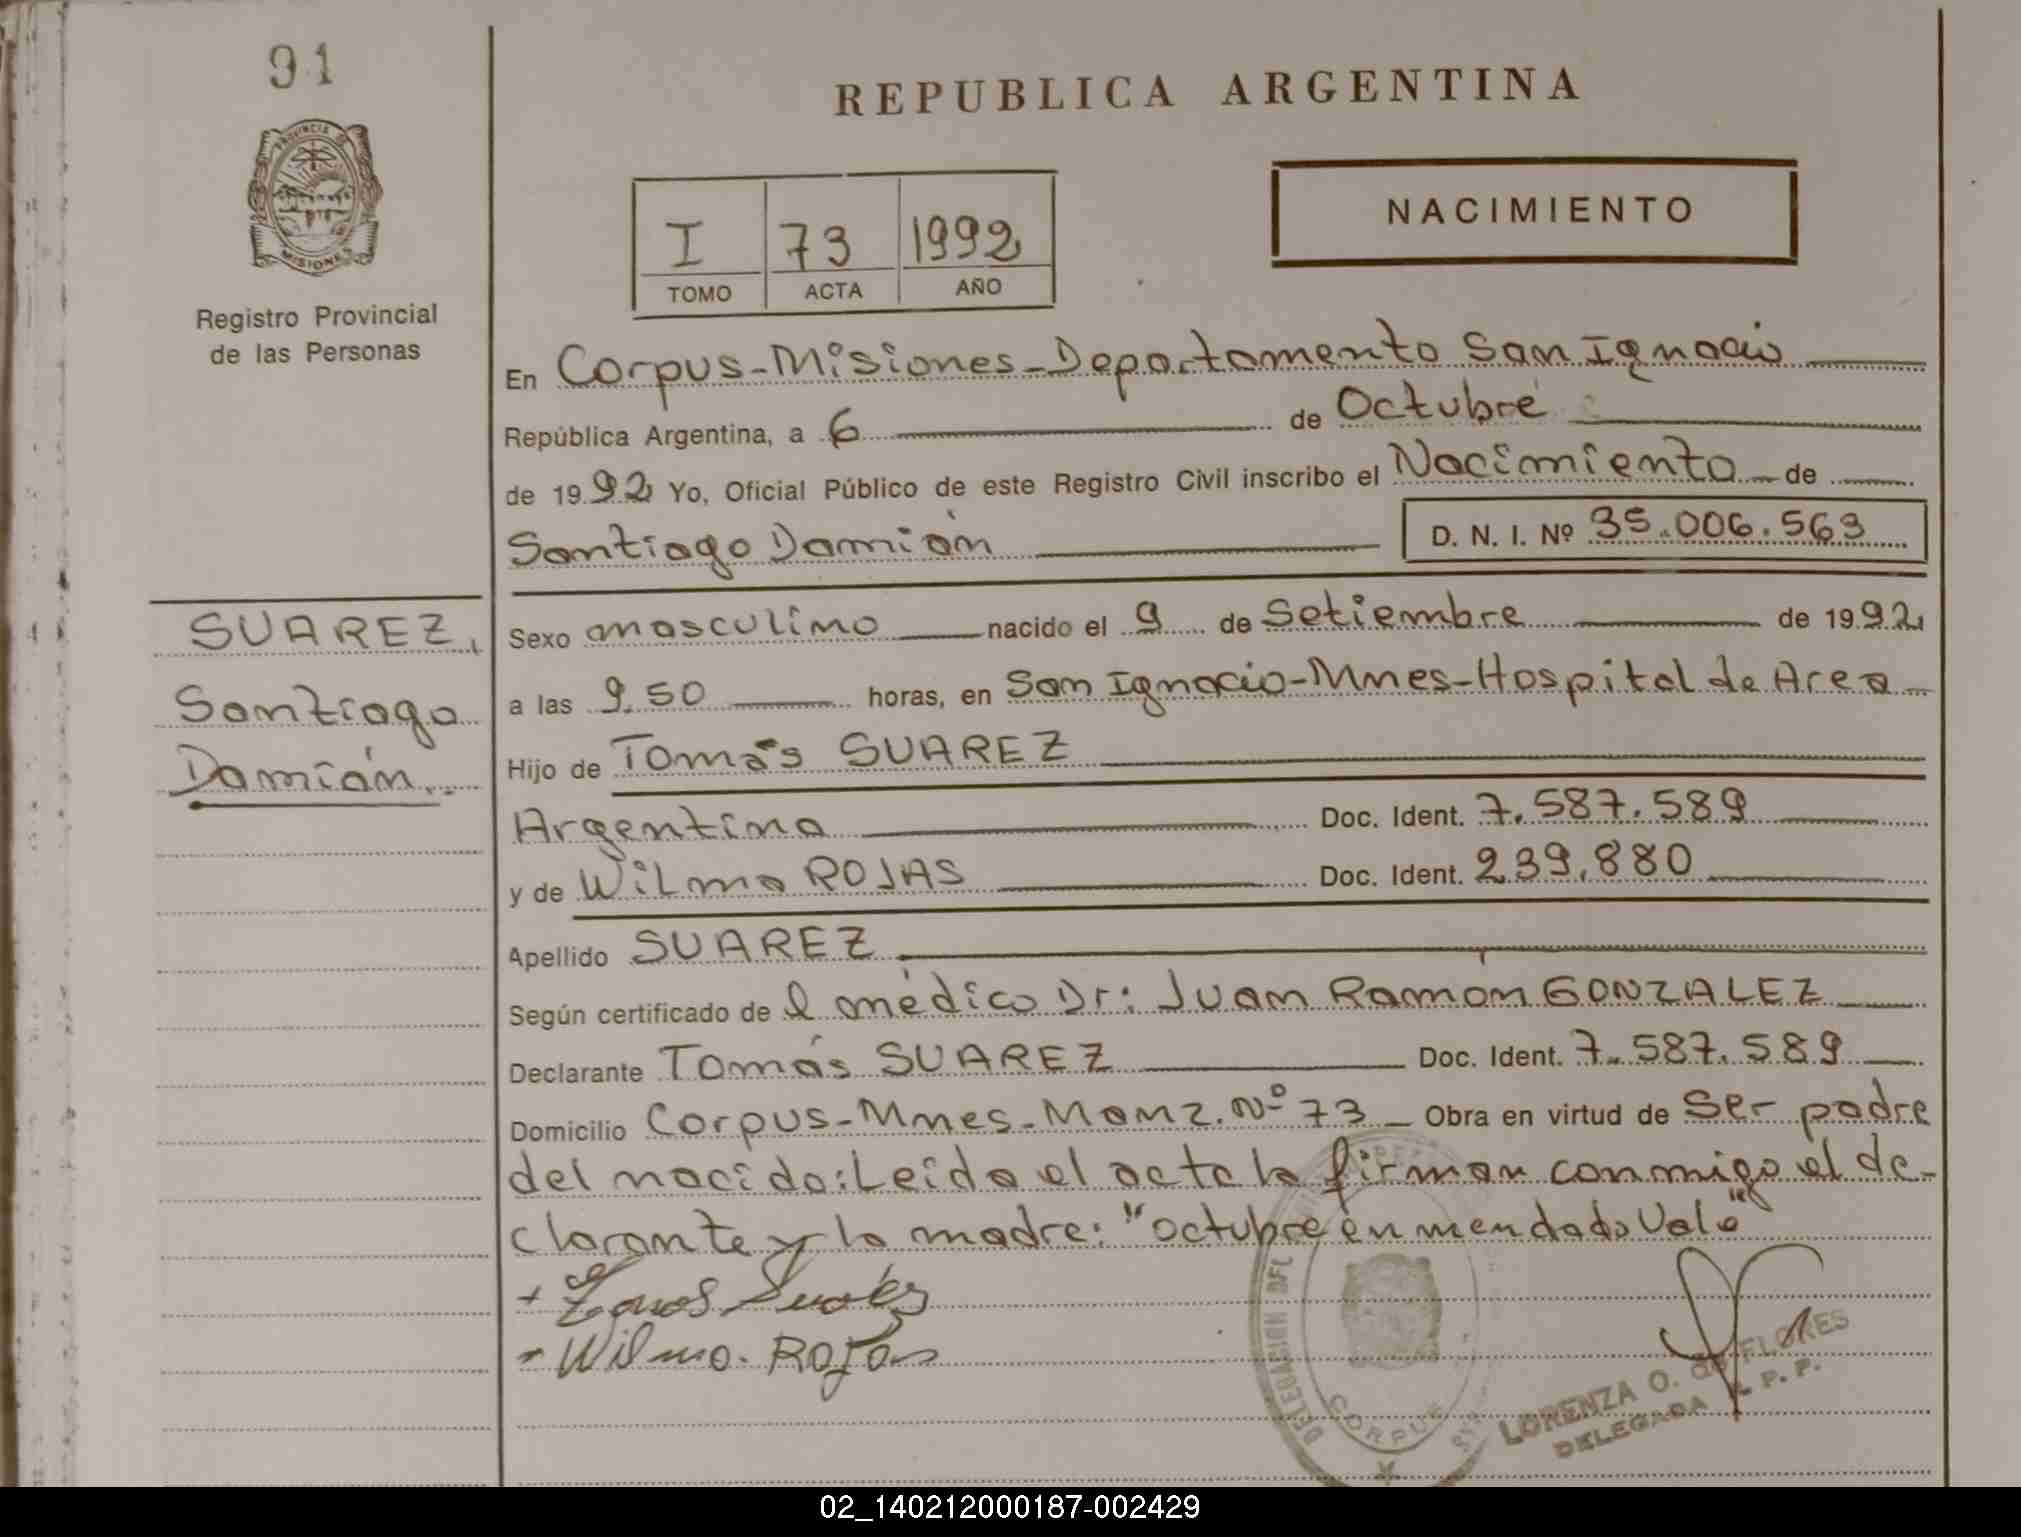 91
REPUBLICA ARGENTINA
PROVINCIA DE
MISIONES
Registro Provincial
de las Personas
I 73 1992
TOMO ACTA AÑO
NACIMIENTO
En Corpus-Misiones-Departamento San Ignacio
República Argentina, a 6 de Octubre
de 1992 Yo, Oficial Público de este Registro Civil inscribo el Nacimiento de
Santiago Damián D. N. I. Nº 35.006.563
SUAREZ,
Santiago
Damián.
Sexo masculino nacido el 9 de Setiembre de 1992
a las 9.50 horas, en San Ignacio-Mnes-Hospital de Area
Hijo de Tomás SUAREZ
Argentino Doc. Ident. 7.587.589
y de Wilma ROJAS Doc. Ident. 239.880
Apellido SUAREZ
Según certificado de l médico Dr: Juan Ramón GONZALEZ
Declarante Tomás SUAREZ Doc. Ident. 7.587.589
Domicilio Corpus-Mnes-Manz. Nº 73 Obra en virtud de Ser padre
del nacido: Leída el acta la firman conmigo el de-
clarante y la madre: "octubre enmendado Vale"
+ Tomas Suarez
- Wilma. Rojas
DELEGACION DEL
CORPUS
LORENZA O. de FLORES
DELEGADA R. P. P.
02_140212000187-002429